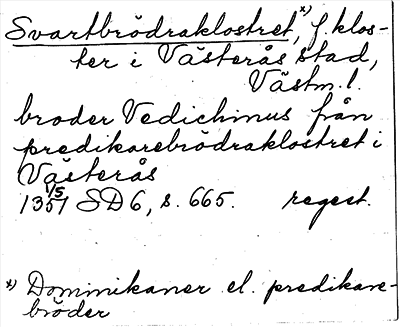 Svartbrödraklostret,ˣ⁾ f. klos-
ter i Västerås stad,
Västm. l.
broder Vedichinus från
predikarebrödraklostret i
Västerås
1351 1/5 SD 6, s. 665. regest.
x) Dominikaner el. predikare-
bröder